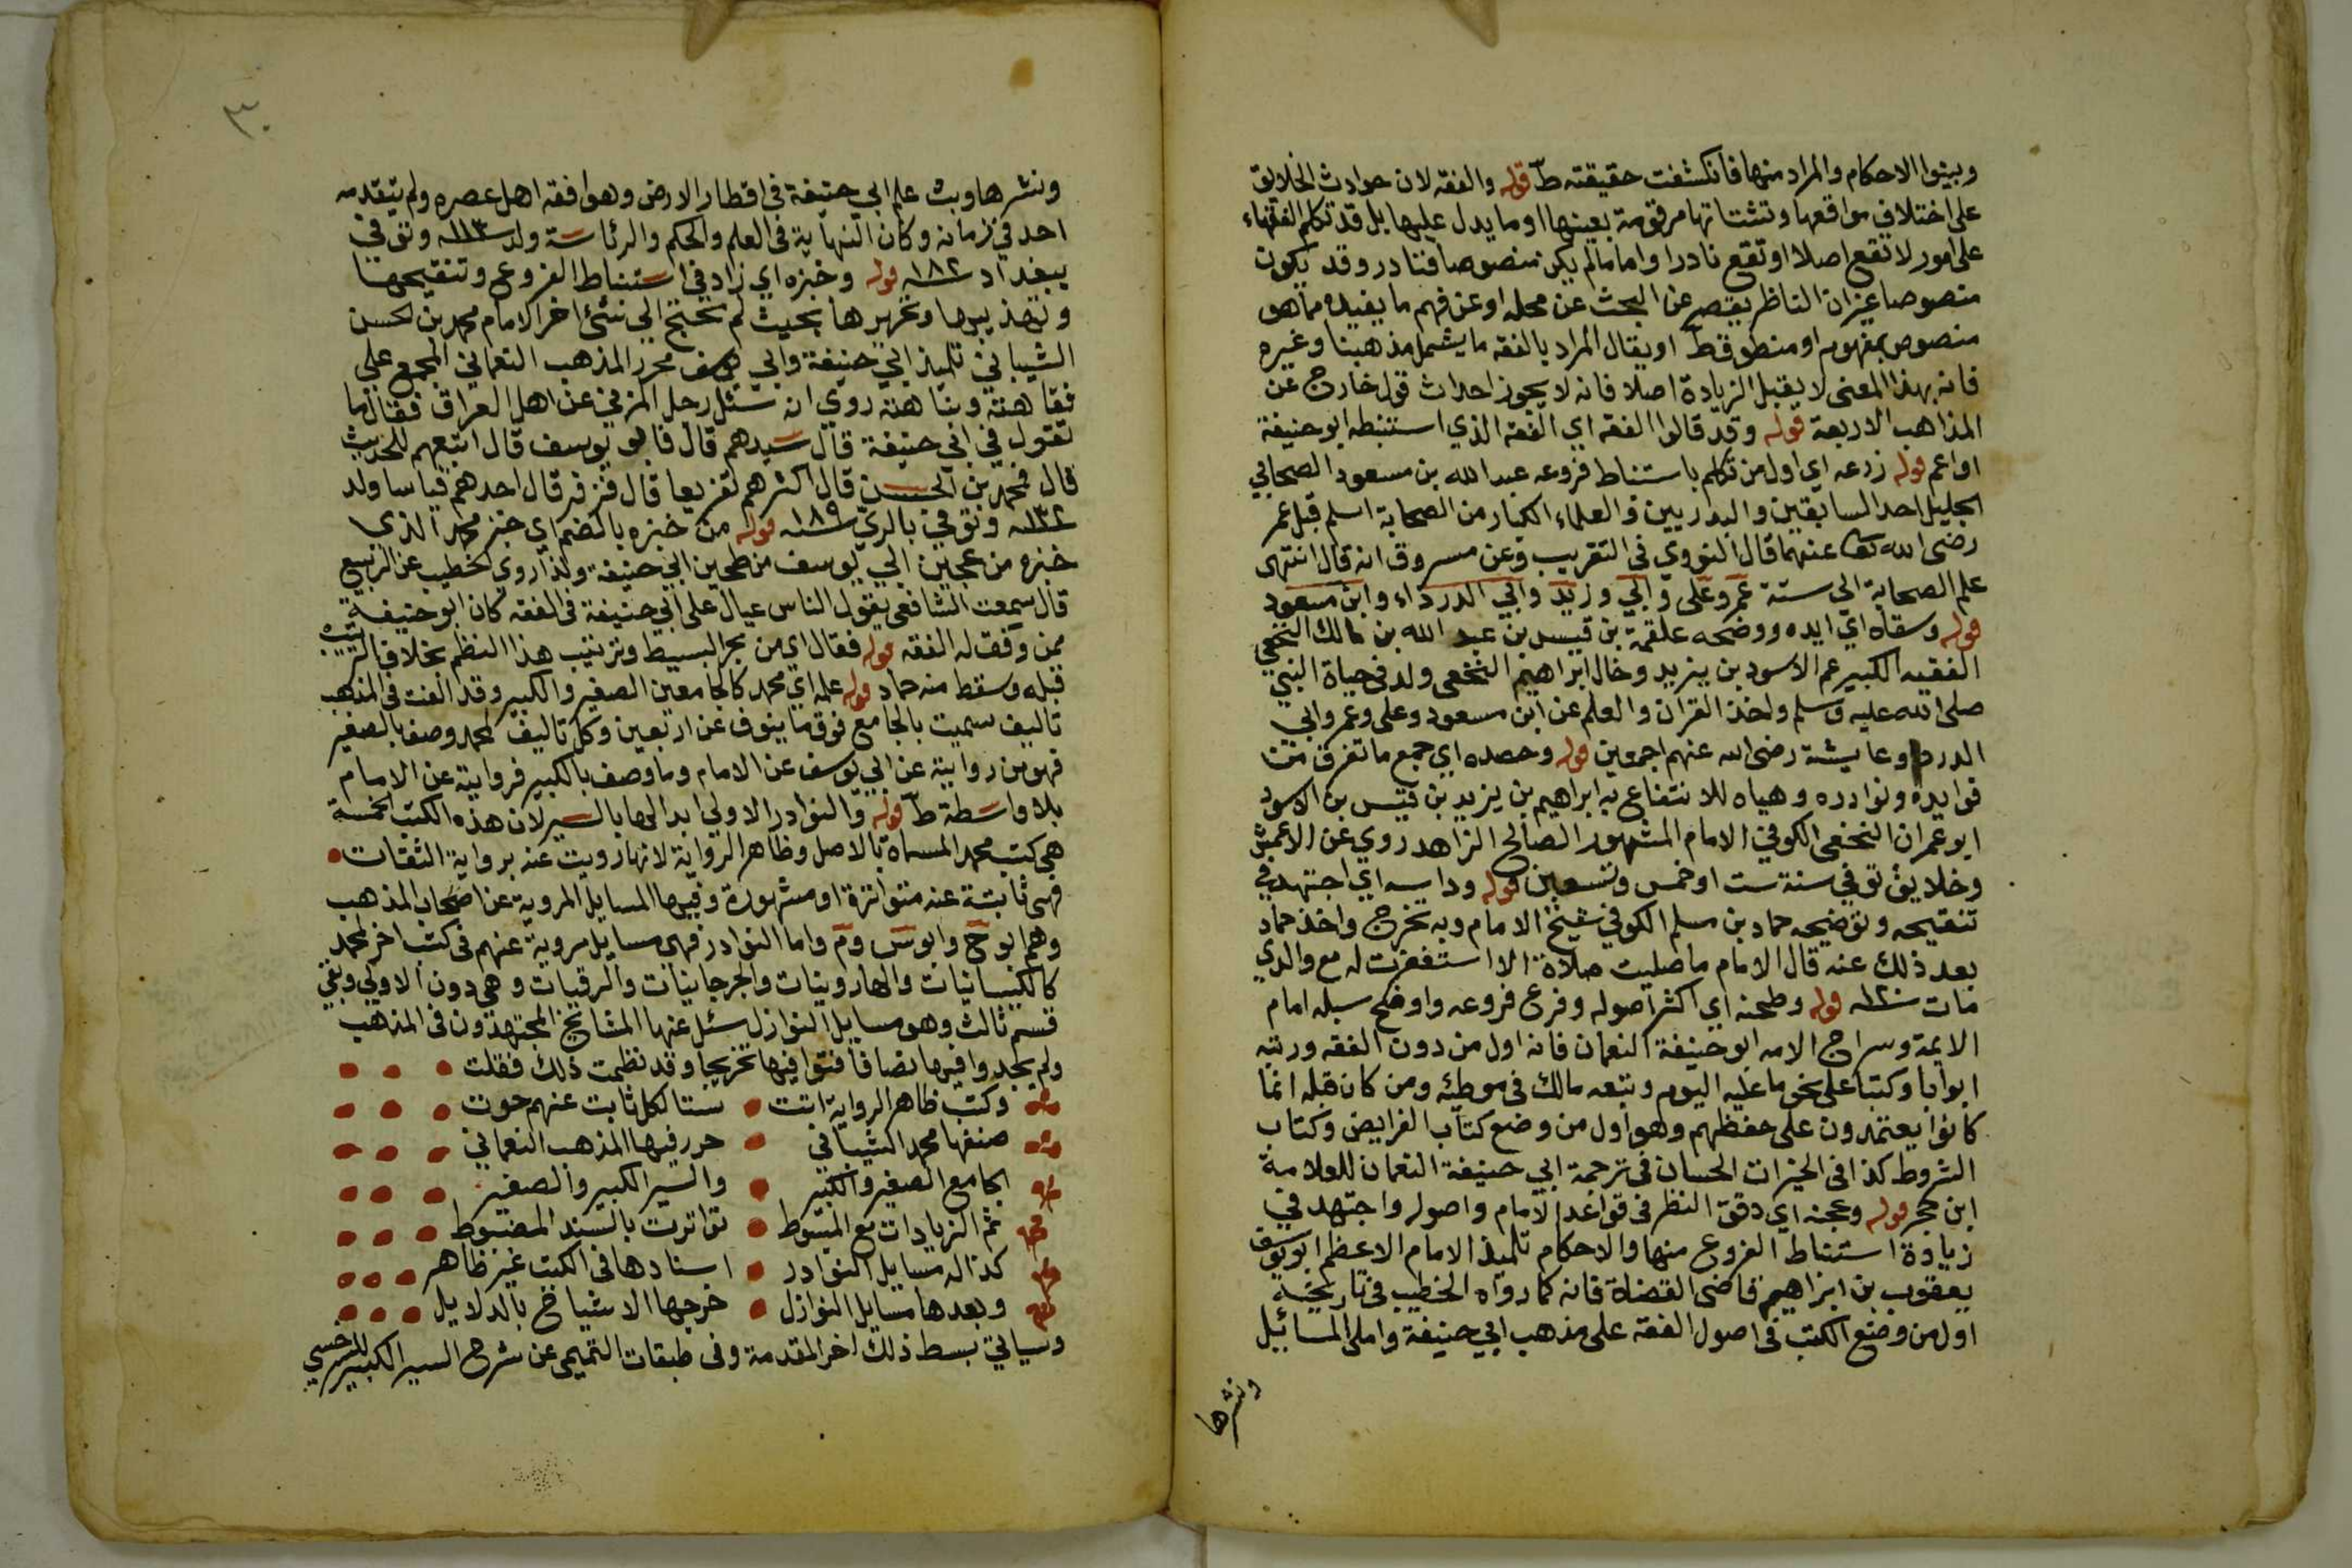 وبينوا الاحكام والمراد منها فانكشفت حقيقته ط قوله والفقه لان حوادث الخلايق
على اختلاف مواقعها وتشتاتها مرقومة بعينها او ما يدل عليها بل قد تكلم الفقهاء
على امور لا تقع اصلا او تقع نادرا واما ما لم يكن منصوصا فنادر وقد يكون
منصوصا غير ان الناظر يقصر عن البحث عن محله او عن فهم ما يفيده مما هو
منصوص بمفهوم او منطوق ط او يقال المراد بالفقه ما يشمل مذهبنا وغيره
فانه بهذا المعنى لا يقبل الزيادة اصلا فانه لا يجوز احداث قول خارج عن
المذاهب الاربعة قوله وقد قالوا الفقه اي الفقه الذي استنبطه ابو حنيفة
او اعم قوله زرعه اي اول من تكلم باستنباط فروعه عبد الله بن مسعود الصحابي
الجليل احد السابقين والبدريين والعلماء الكبار من الصحابة اسلم قبل عمر
رضى الله تعا عنهما قال النووي في التقريب وعن مسروق انه قال انتهى
علم الصحابة الى ستة عمر وعلى وابي وزيد وابي الدرداء وابن مسعود
قوله وسقاه اي ايده ووضحه علقمة بن قيس بن عبد الله بن مالك النخعي
الفقيه الكبير عم الاسود بن يزيد وخال ابراهيم النخعى ولد في حياة النبي
صلى الله عليه وسلم واخذ القران والعلم عن ابن مسعود وعلى وعمر وابي
الدردا وعايشة رضى الله عنهم اجمعين قوله وحصده اي جمع ما تفرق من
فوايده ونوادره وهياه للانتفاع به ابراهيم بن يزيد بن قيس بن الاسود
ابو عمران النخعى الكوفي الامام المشهور الصالح الزاهد روي عن الاعمش
وخلايق توفي سنة ست او خمس وتسعين قوله وداسه اي اجتهد في
تنقيحه وتوضيحه حماد بن مسلم الكوفي شيخ الامام وبه تخرج واخذ حماد
بعد ذلك عنه قال الامام ما صليت صلاة الا استغفرت له مع والدي
مات سنة ١٢٠ قوله وطحنه اي اكثر اصوله وفرع فروعه واوضح سبله امام
الايمة وسراج الامه ابو حنيفة النعمان فانه اول من دون الفقه ورتبه
ابوابا وكتبا على نحو ما عليه اليوم وتبعه مالك في موطئه ومن كان قبله انما
كانوا يعتمدون على حفظهم وهو اول من وضع كتاب الفرايض وكتاب
الشروط كذا في الخيرات الحسان في ترجمة ابي حنيفة النعمان للعلامة
ابن حجر قوله وعجنه اي دقق النظر في قواعد الامام واصوله واجتهد في
زيادة استنباط الفروع منها والاحكام تلميذ الامام الاعظم ابو يوسف
يعقوب بن ابراهيم قاضى القضاة فانه كما رواه الخطيب في تاريخه
اول من وضع الكتب في اصول الفقه على مذهب ابي حنيفة واملى المسائيل
ونشرها
٣٠
ونشرها وبث علم ابي حنيفة في اقطار الارض وهو افقه اهل عصره ولم يتقدمه
احد في زمانه وكان النهاية في العلم والحكم والرئاسة ولد سنة ١١٣ وتوفي
ببغداد سنة ١٨٢ قوله وخبزه اي زاد في استنباط الفروع وتنقيحها
وتهذيبها وتحريرها بحيث لم تحتج الى شئ اخر الامام محمد بن الحسن
الشيباني تلميذ ابي حنيفة وابي يوسف محرر المذهب النعماني المجمع على
فقاهته ونباهته روي انه سئل رجل المزني عن اهل العراق فقال ما
تقول في ابي حنيفة قال سيدهم قال فابو يوسف قال اتبعهم للحديث
قال فمحمد بن الحسن قال اكثرهم تفريعا قال فزفر قال احدهم قياسا ولد
سنة ١٣٢ وتوفي بالري سنة ١٨٩ قوله من خبزه بالضم اي خبز محمد الذي
خبزه من عجين ابي يوسف من طحين ابي حنيفة ولذا روي الخطيب عن الربيع
قال سمعت الشافعى يقول الناس عيال على ابي حنيفة في الفقه كان ابو حنيفة
ممن وفق له الفقه قوله فقال اي من بحر البسيط وترتيب هذا النظم بخلاف الترتيب
قبله وسقط منه حماد قوله علمه اي محمد كالجامعين الصغير والكبير وقد الفت في المذهب
تاليف سميت بالجامع فوق ما ينوف عن اربعين وكل تاليف لمحمد وصف بالصغير
فهو من روايته عن ابي يوسف عن الامام وما وصف بالكبير فروايته عن الامام
بلا واسطة ط قوله والنوادر الاولى ابدالها بالسير لان هذه الكتب الخمسة
هي كتب محمد المسماة بالاصل وظاهر الرواية لانها رويت عنه برواية الثقات
فهى ثابتة عنه متواترة او مشهورة وفيها المسايل المروية عن اصحاب المذهب
وهم ابو ح وابو س وم واما النوادر فهى مسايل مروية عنهم في كتب اخر لمحمد
كالكيسانيات والهارونيات والجرجانيات والرقيات وهي دون الاولى وبقي
قسم ثالث وهو مسايل النوازل سئل عنها المشايخ المجتهدون في المذهب
ولم يجدوا فيها نصا فافتوا فيها تخريجا وقد نظمت ذلك فقلت
وكتب ظاهر الرواية اتت ستا لكل ثابت عنهم حوت
صنفها محمد الشيباني حرر فيها المذهب النعماني
الجامع الصغير والكبير والسير الكبير والصغير
ثم الزيادات مع المبسوط تواترت بالسند المضبوط
كذا له مسايل النوادر اسنادها في الكتب غير ظاهر
وبعدها مسايل النوازل خرجها الاشياخ بالدلايل
وسياتي بسط ذلك اخر المقدمة وفي طبقات التميمى عن شرح السير الكبير للسرخسي